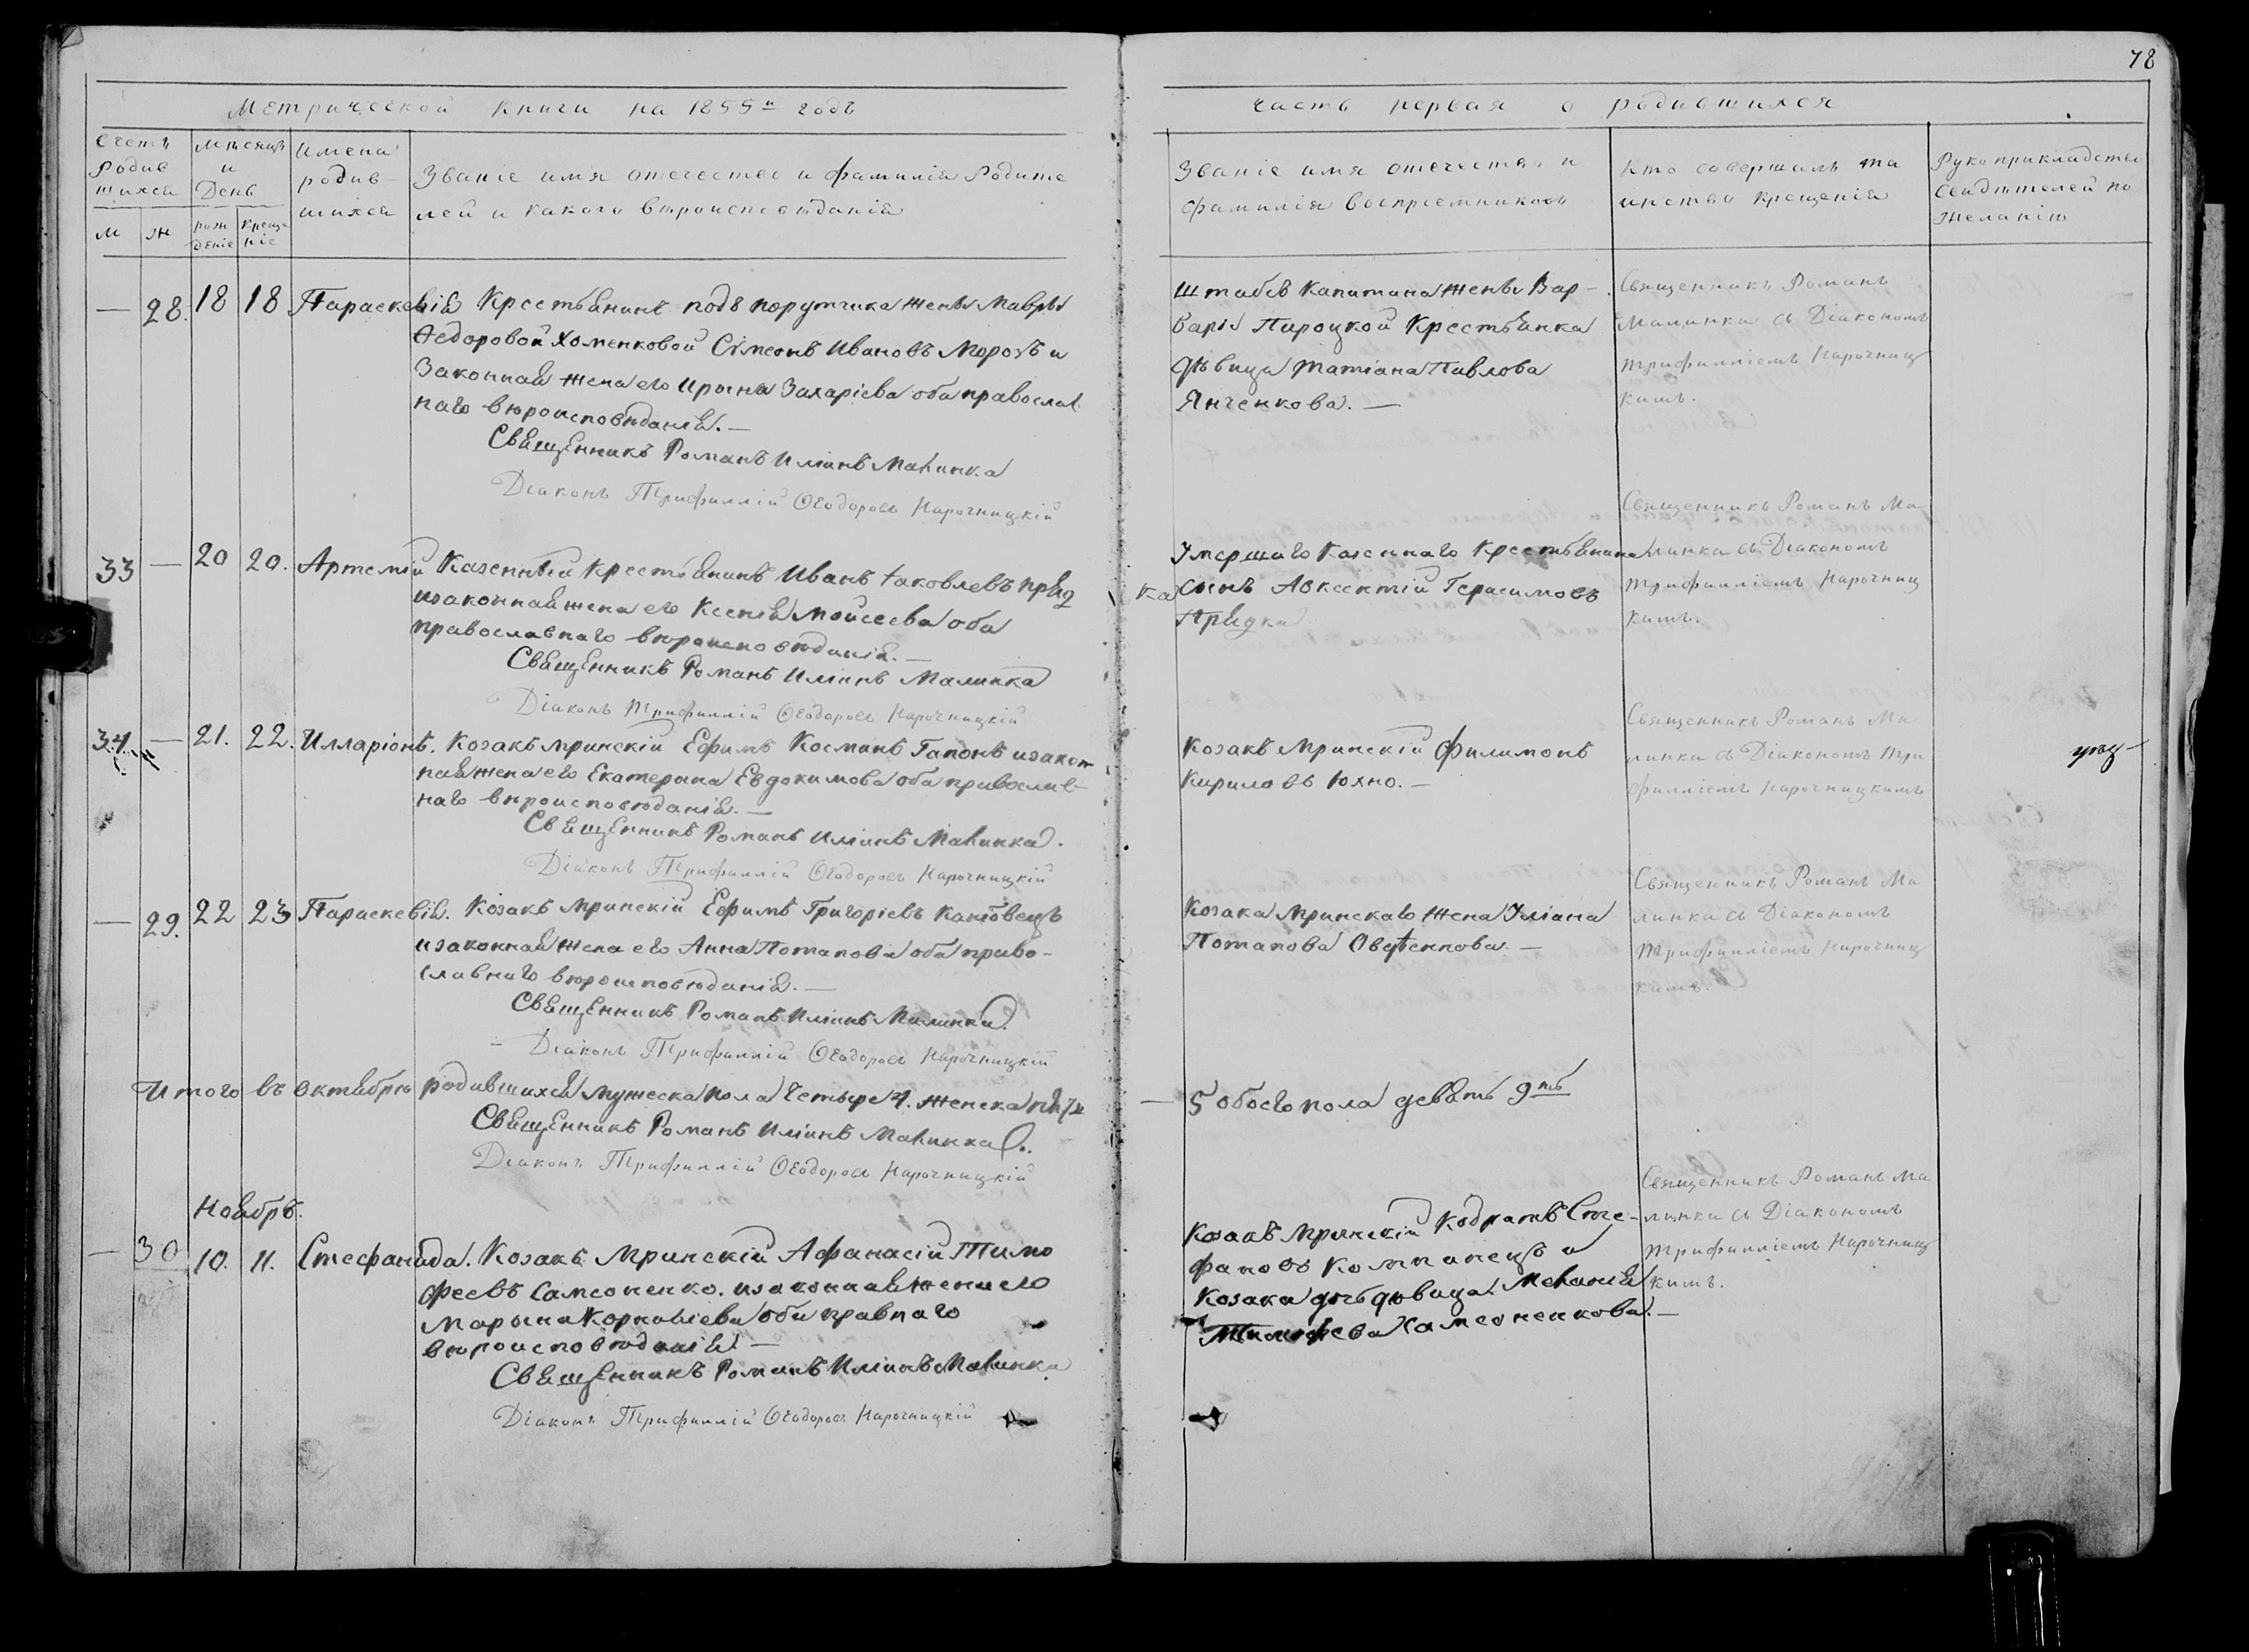 78
Метрической книги на 1855й годъ
часть первая о родившихся
Счетъ родившихся
М ж
Мѣсяцъ и День
рожденіе крещеніе
Имена родившихся
Званіе имя отечество и фамилія Родите
лей и какого вѣроисповѣданія
Званіе имя отечество и
фамилія воспріемниковъ
Кто совершалъ та
инство крещенія
Рукоприкладство
свидѣтелей по
желанію
— 28. 18 18 Параскевія Крестьянинъ подъ порутчика жены Мавры
Ѳедоровой Хоменковой Сімеонъ Ивановъ Морозъ и
Законная жена его Ирына Захаріева оба православ
наго вѣроисповѣданія.—
Священникъ Романъ Иліинъ Малинка
Діаконъ Трифиллій Ѳеодоровъ Нарочницкій
Штабсъ Капитана жены Вар-
вары Пироцкой Крестьянка
дѣвица Татіана Павлова
Янченкова.—
Священникъ Романъ
Малинка съ Діакономъ
Трифилліемъ Нарочниц
кимъ.
33 — 20 20. Артемій Казенный Крестьянинъ Иванъ Іаковлевъ Пряд
ка
изаконная жена его Ксенія Мойсеева оба
православнаго вѣроисповѣданія.—
Священникъ Романъ Иліинъ Малинка
Діаконъ Трифиллій Ѳеодоровъ Нарочницкій
Умершаго Казеннаго Крестьянина
сынъ Авксентій Герасимовъ
Прядка
Священникъ Романъ Ма
линка съ Діакономъ
Трифилліемъ Нарочниц
кимъ.
34 — 21. 22. Илларіонъ. Козакъ Мринскій Ефимъ Косминъ Гапонъ изакон
ная жена его Екатерина Евдокимова оба православ-
наго вѣроисповѣданія.—
Священникъ Романъ Иліинъ Малинка.
Діаконъ Трифиллій Ѳеодоровъ Нарочницкій
Козакъ Мринскій Филимонъ
Кириловъ Юхно.—
Священникъ Романъ Ма
линка съ Діакономъ Три
филліемъ Нарочницкимъ
— 29. 22 23 Параскевія. Козакъ Мринскій Ефимъ Григоріевъ
изаконная жена его Анна Потапова оба право-
славнаго вѣроисповѣданія.—
Священникъ Романъ Иліинъ Малинка.
Діаконъ Трифиллій Ѳеодоровъ Нарочницкій
Козака Мринскаго жена Уліана
Потапова
Священникъ Романъ Ма
линка съ Діакономъ
Трифилліемъ Нарочниц
кимъ.
Итого въ октябрѣ родившихся мужеска пола четыре 4. женска пять
— 5 обоего пола девять 9ть
Священникъ Романъ Иліинъ Малинка.
Діаконъ Трифиллій Ѳеодоровъ Нарочницкій
Ноябрь.
— 30 10. 11. Стефанида. Козакъ Мринскій Афанасій Тимо
феевъ Самсоненко. изаконная жена его
Марына Корниліева оба правнаго
вѣроисповѣданія—
Священникъ Романъ Иліинъ Малинка
Діаконъ Трифиллій Ѳеодоровъ Нарочницкій
Козакъ Мринскій Кодратъ Сте-
фановъ Компанецъ и
Козака дочь дѣвица Меланія
Тимофева Самсоненкова.—
Священникъ Романъ Ма
линка съ Діакономъ
Трифилліемъ Нарочниц
кимъ.